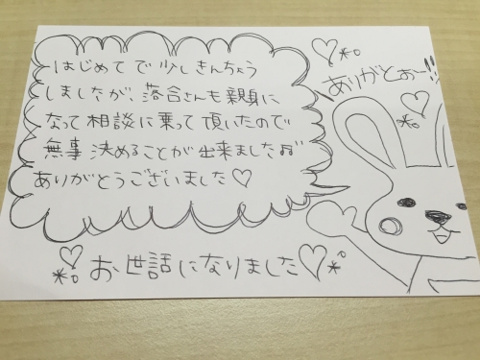 はじめてで少しきんちょう
しましたが、落合さんも親身に
なって相談に乗って頂いたので
無事 決めることが出来ました♬
ありがとうございました♡
ありがとおー!!
お世話になりました♡